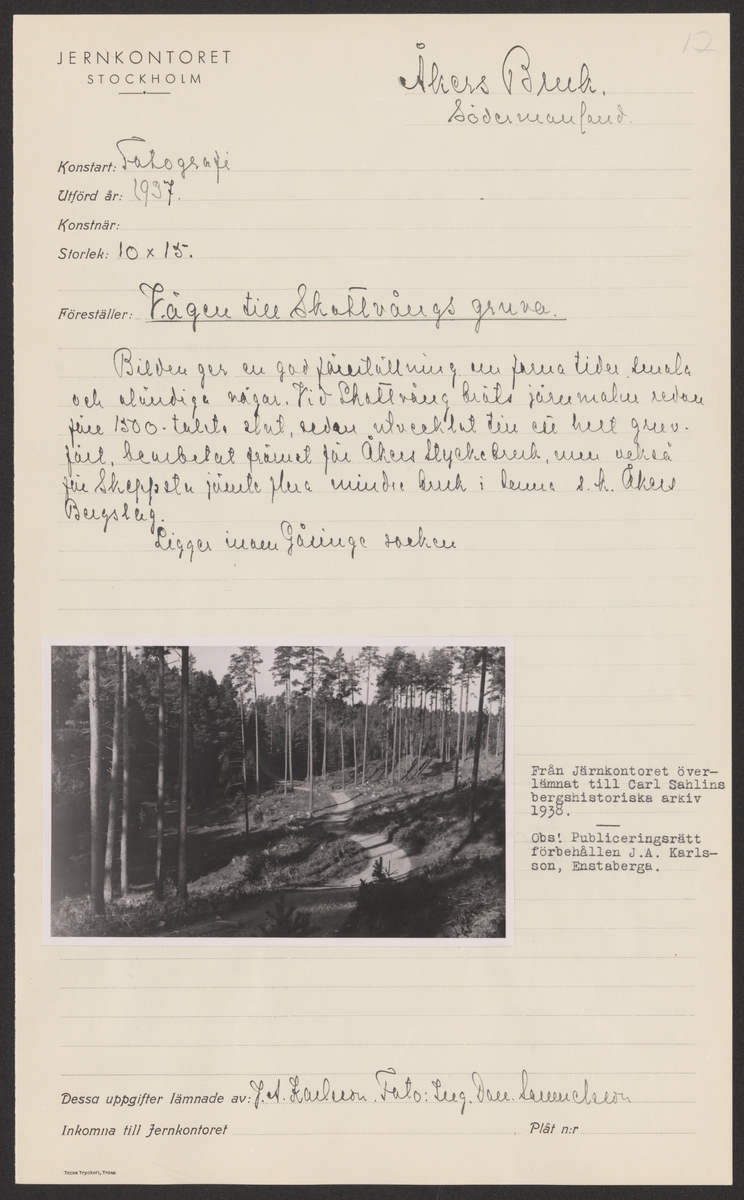 12
JERNKONTORET
STOCKHOLM
Åkers Bruk.
Södermanland.
Konstart: Fotografi
Utförd år: 1937.
Konstnär:
Storlek: 10 x 15.
Föreställer: Vägen till Skottvångs gruva.
Bilden ger en god föreställning om forna tider smala
och eländiga vägar. Vid Skottvång bröts järnmalm redan
före 1500-talets slut, sedan utvecklat till ett helt gruv-
fält, bearbetat främst för Åkers Styckebruk, men också
för Skeppsta jämte flera mindre bruk i denna s.k. Åkers
Bergslag.
Ligger inom Gåsinge socken
Från Järnkontoret över-
lämnat till Carl Sahlins
bergshistoriska arkiv
1938.
Obs! Publiceringsrätt
förbehållen J.A. Karls-
son, Enstaberga.
Dessa uppgifter lämnade av: J. A. Karlsson. Foto: Ing. Dan. Samuelsson
Inkomna till Jernkontoret
Plåt n:r
Trosa Tryckeri, Trosa